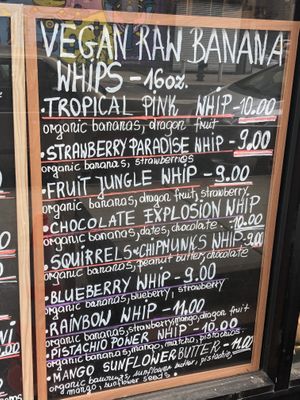 VEGAN RAW BANANA
WHIPS - 16oz.
• TROPICAL PINK WHIP - 10.00
organic bananas, dragon fruit
• STRAWBERRY PARADISE WHIP - 9.00
organic bananas, strawberries
• FRUIT JUNGLE WHIP - 9.00
organic bananas, dragon fruit, strawberry
• CHOCOLATE EXPLOSION WHIP
organic bananas, dates, chocolate - 10.00
• SQUIRRELS & CHIPMUNKS WHIP - 9.00
organic bananas, peanut butter, chocolate
• BLUEBERRY WHIP - 9.00
organic bananas, blueberry, strawberry
• RAINBOW WHIP - 11.00
organic bananas, strawberry, mango, dragon fruit
• PISTACHIO POWER WHIP - 10.00
organic bananas, mango, matcha, pistachio
• MANGO SUNFLOWER BUTTER - 11.00
organic bananas, sunflower butter, pistachio
mango, sunflower seeds